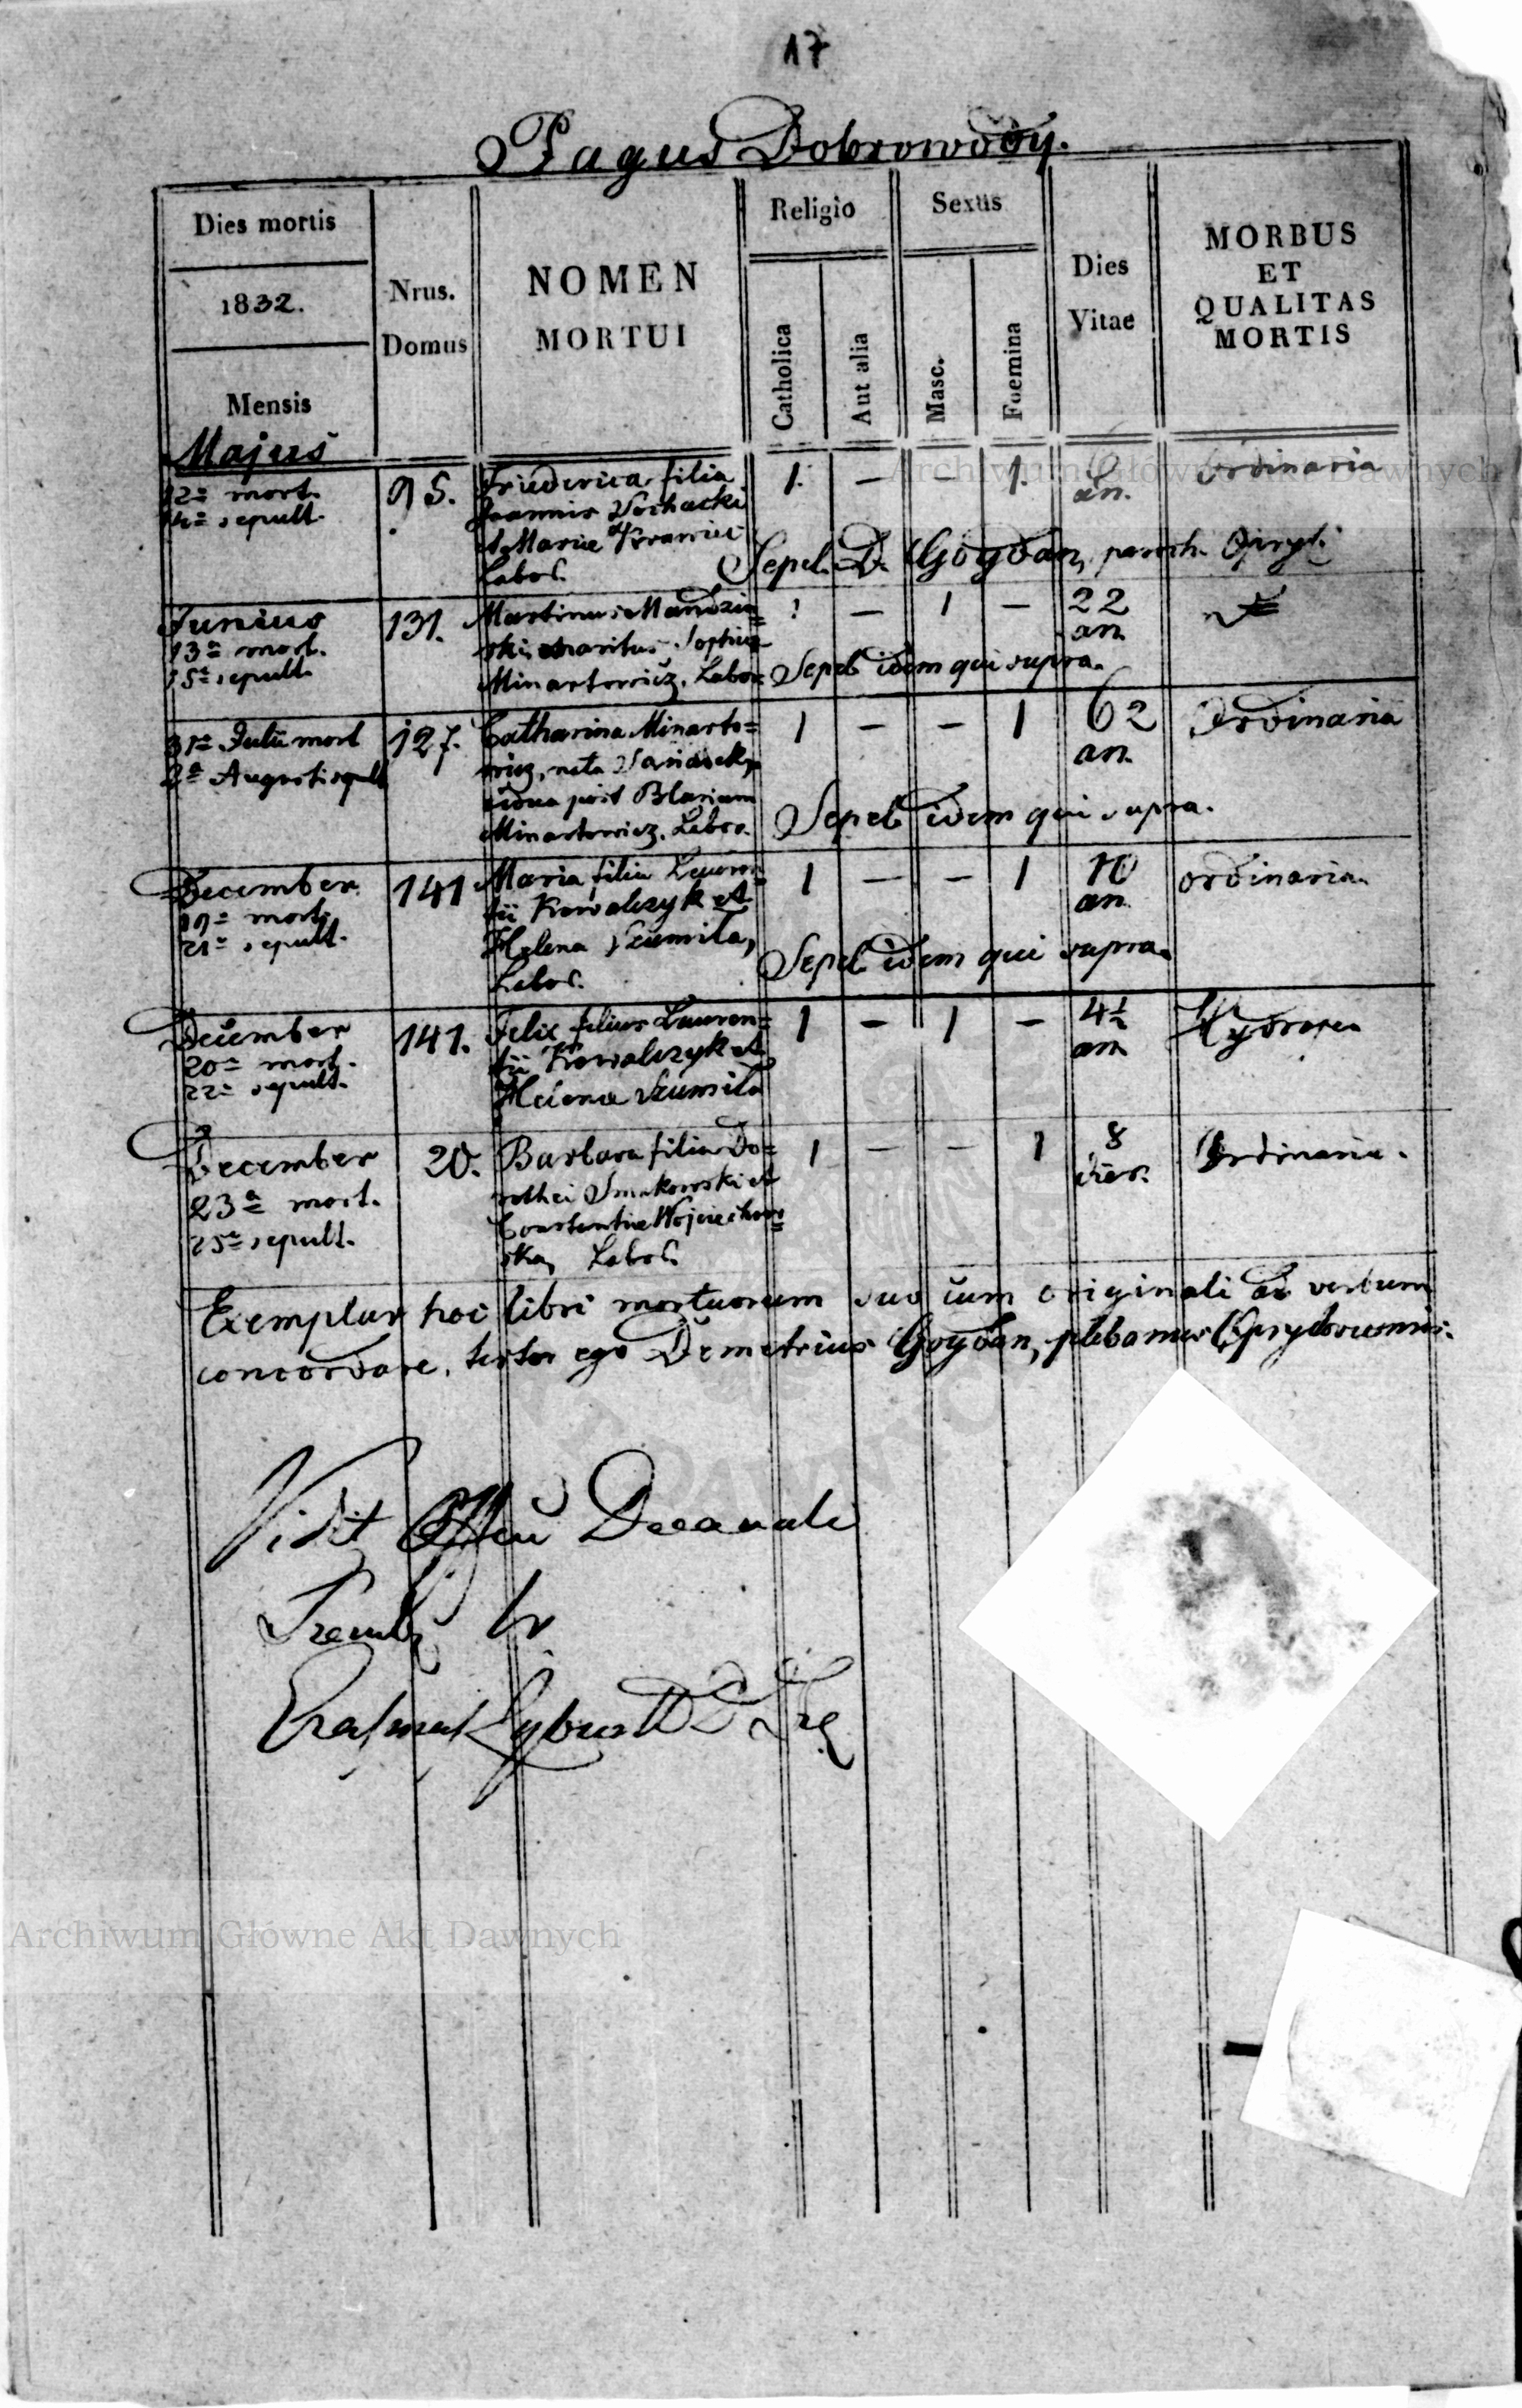 17
Pagus Dobrowody.
Dies mortis
1832.
Mensis
Nrus.
Domus
NOMEN
MORTUI
Religio
Catholica
Aut alia
Sextis
Masc.
Foemina
Dies
Vitae
MORBUS
ET
QUALITAS
MORTIS
Majus
12a mort.
14a sepult.
95.
Friederica filia
Joannis
et Mariae
Labor.
1. — — 1. 6
an.
Ordinaria
Sepel. D. Goydan, paroch. Opryl.
Junius
13a mort.
15a sepult.
131.
Martinus Mandzin=
ski maritus Sophiae
Minartowicz. Labor.
1 — 1 — 22
an
Sepel idem qui supra.
31a Julii mort
2a Augusti sepult
127.
Catharina Minarto=
wicz, nata
vidua post Blasium
Minartowicz. Labor.
1 — — 1 62
an.
Ordinaria
Sepel idem qui supra.
December
19a mort.
21a sepult.
141
Maria filia Lauren=
tii Kowalczyk et
Helena Szumila,
Labor.
1 — — 1 10
an
ordinaria
Sepel idem qui supra.
December
20a mort.
22a sepult.
141.
Felix filius Lauren=
tii Kowalczyk et
Helena Szumila
1 — 1 — 4½
an
December
23a mort.
25a sepult.
20.
Barbara filia Do=
rothei Smukowski et
Constantine Wojciechow=
ska, Labor.
1 — — 1 8
dies.
Ordinaria.
Exemplar hoc libri mortuorum suo cum originali ad verbum
concordare, testor ego Demetrius Goydan, plebanus
Vidit Offcu Decanale
Archiwum Główne Akt Dawnych
Archiwum Główne Akt Dawnych